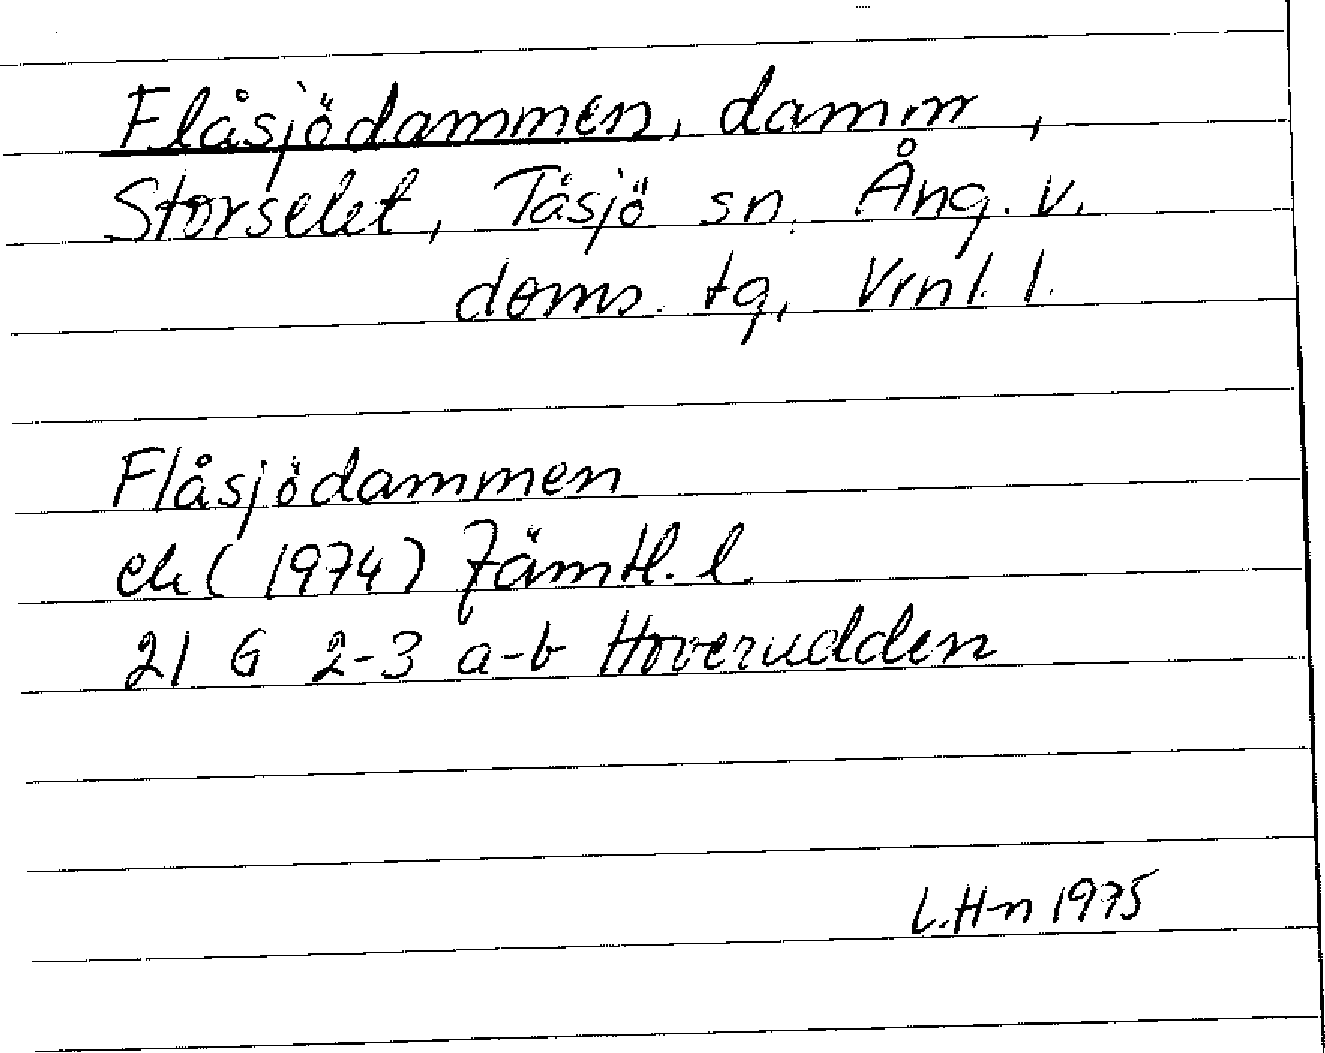 Flåsjödammen, damm,
Storselet, Tåsjö sn. Ång. v.
doms. tg, Vrnl. l.
Flåsjödammen
ek (1974) Jämtl. l
21 G 2-3 a-b Hoverudden
L.H-n 1975